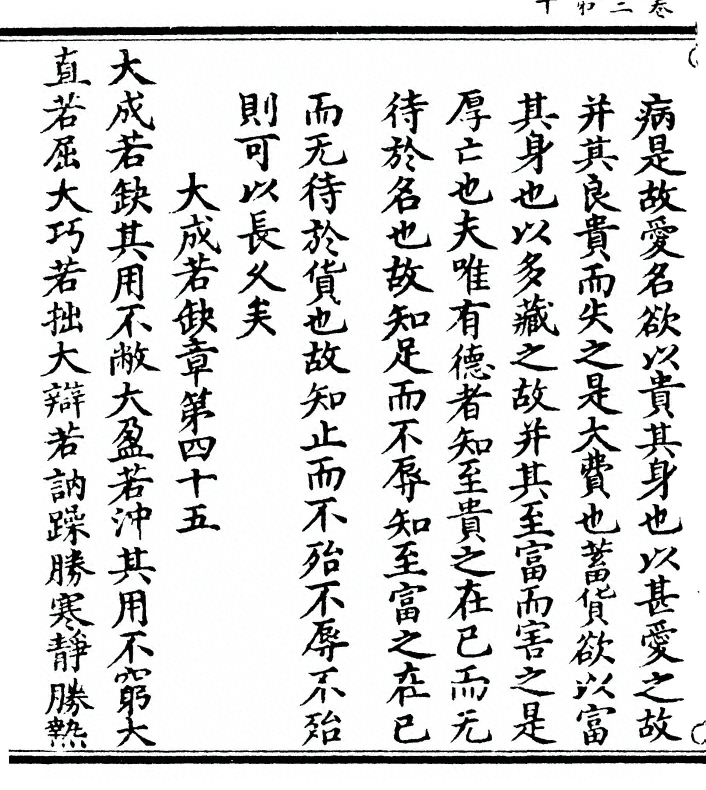 病是故愛名欲以貴其身也以甚愛之故
并其良貴而失之是大費也蓄貨欲以富
其身也以多藏之故并其至富而害之是
厚亡也夫唯有德者知至貴之在已而无
待於名也故知足而不辱知至富之在已
而无待於貨也故知止而不殆不辱不殆
則可以長久矣
大成若缺章第四十五
大成若缺其用不敝大盈若沖其用不窮大
直若屈大巧若拙大辯若訥躁勝寒靜勝熱